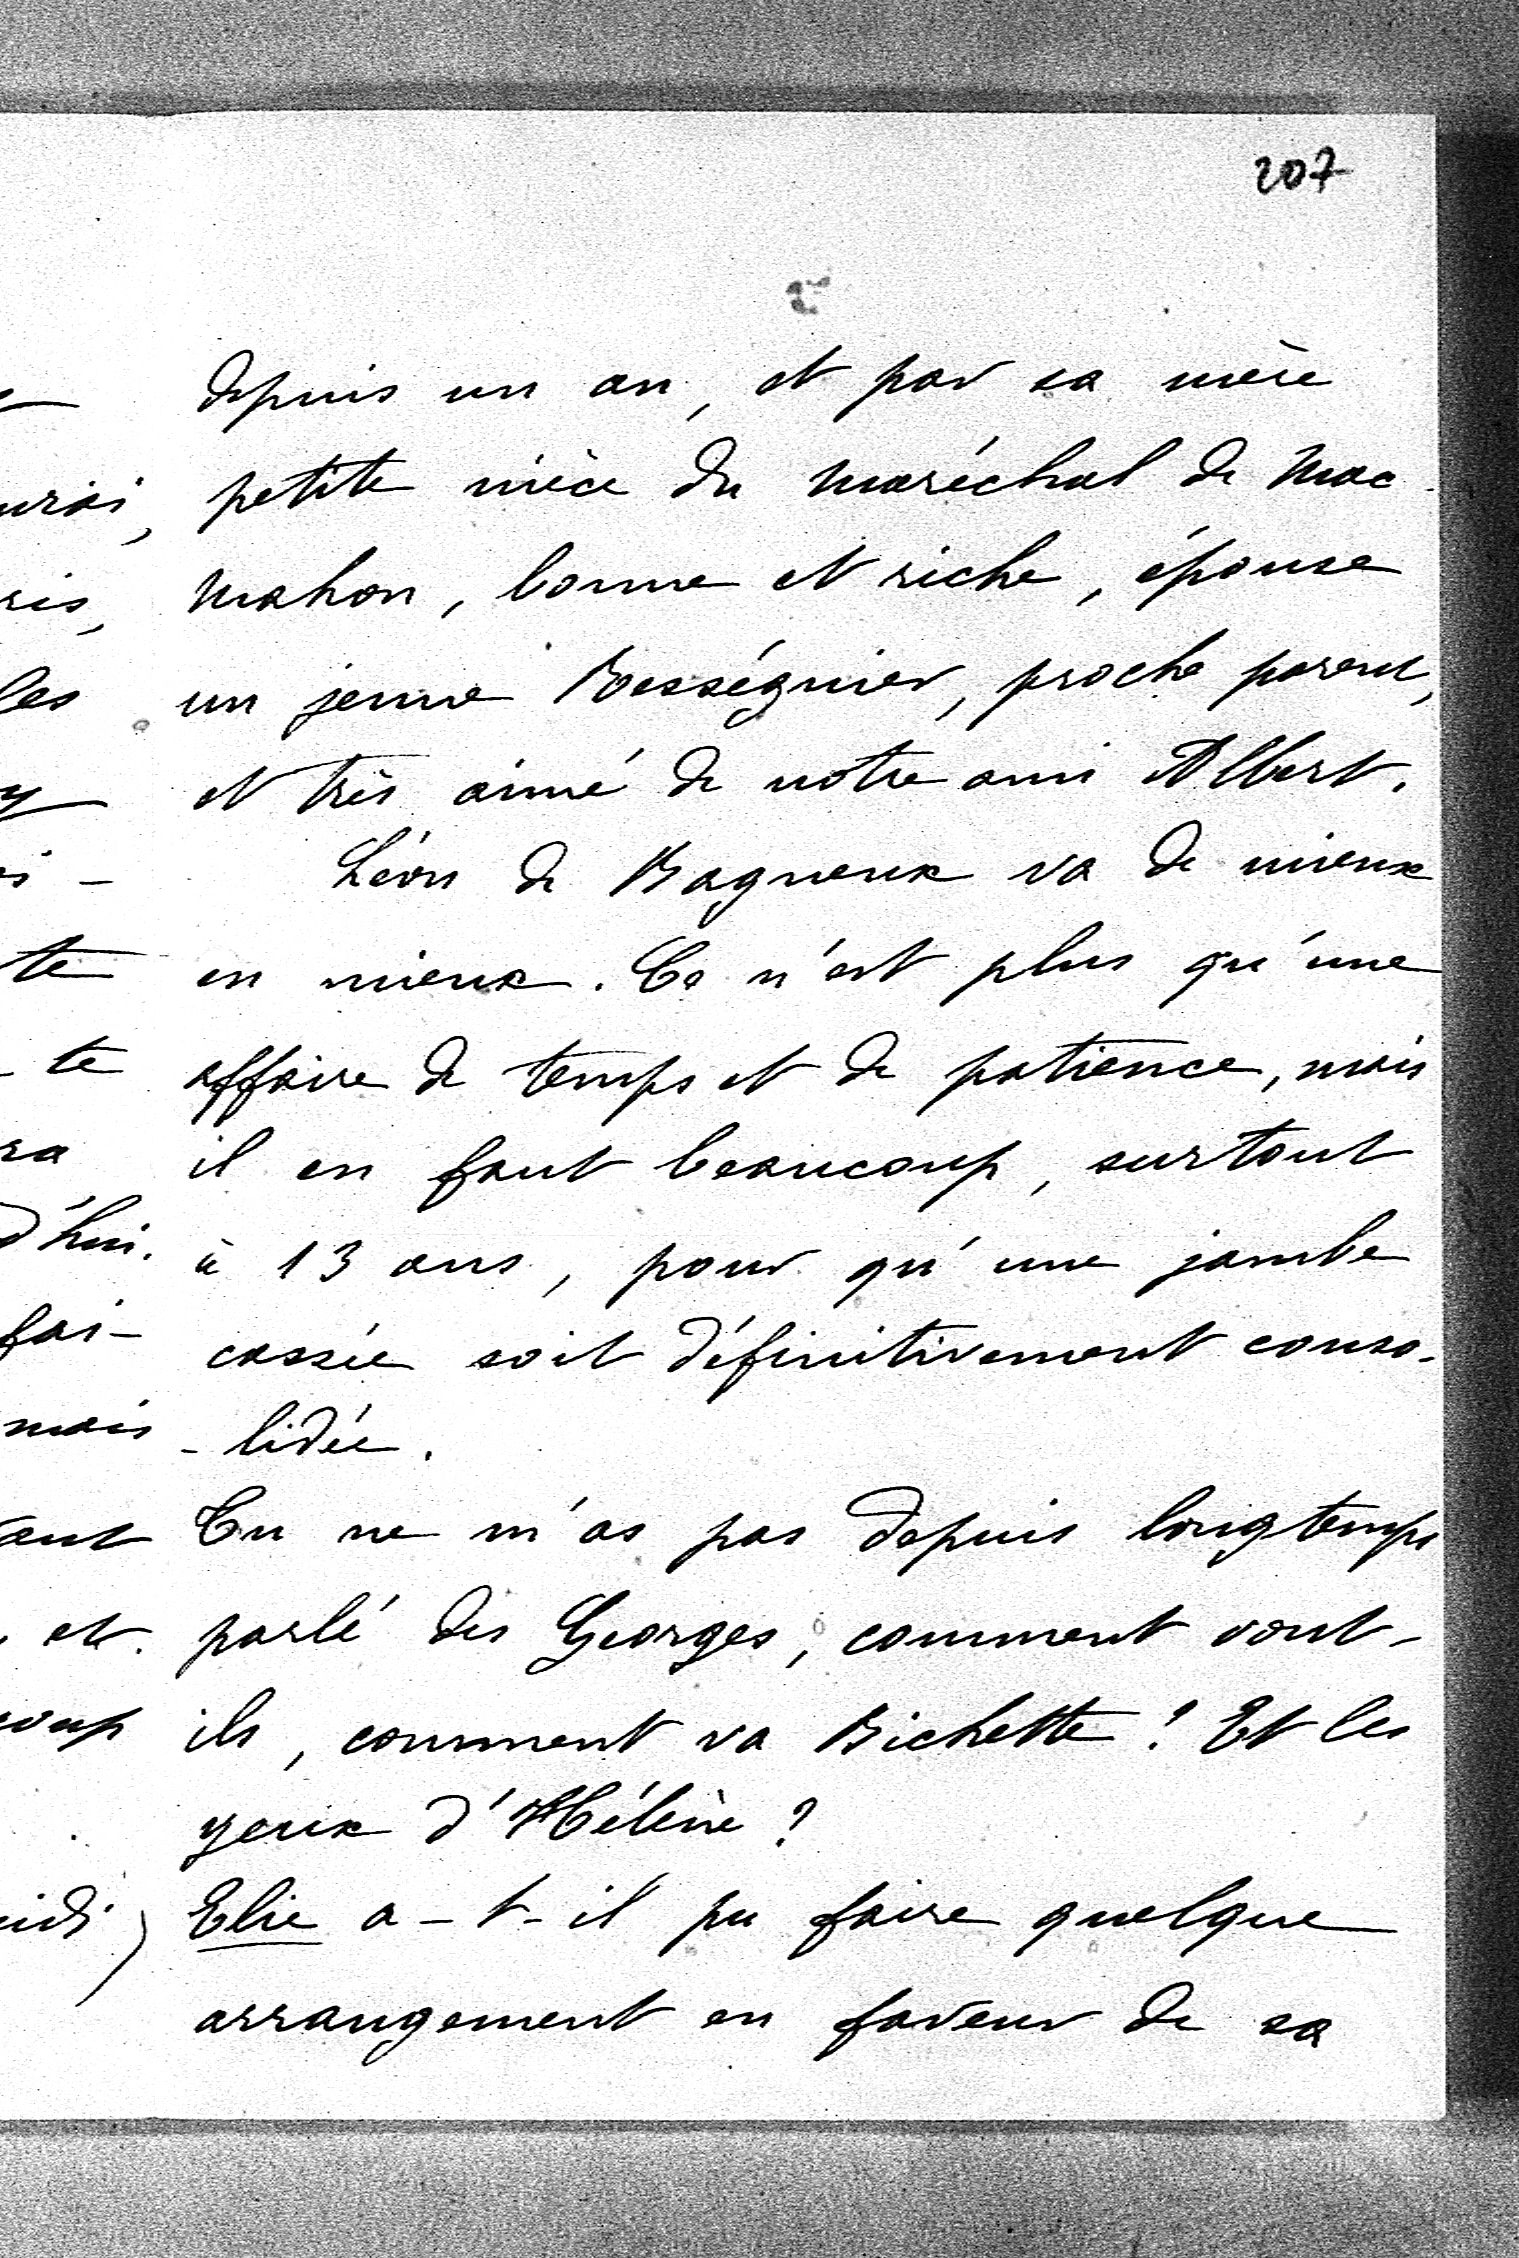 207
depuis un an, et par sa mère
petite nièce du Maréchal de Mac-
Mahon, bonne et riche, épouse
un jeune Rességuier, proche parent,
et très aimé de notre ami Albert.
Léon de Bagneux va de mieux
en mieux. Ce n'est plus qu'une
affaire de temps et de patience, mais
il en faut beaucoup, surtout
à 13 ans, pour qu'une jambe
cassée soit définitivement conso-
-lidée.
Tu ne m'as pas depuis longtemps
parlé des Georges, comment vont-
ils, comment va Bichette ? Et les
yeux d'Hélène ?
Elie a-t-il pu faire quelque
arrangement en faveur de sa